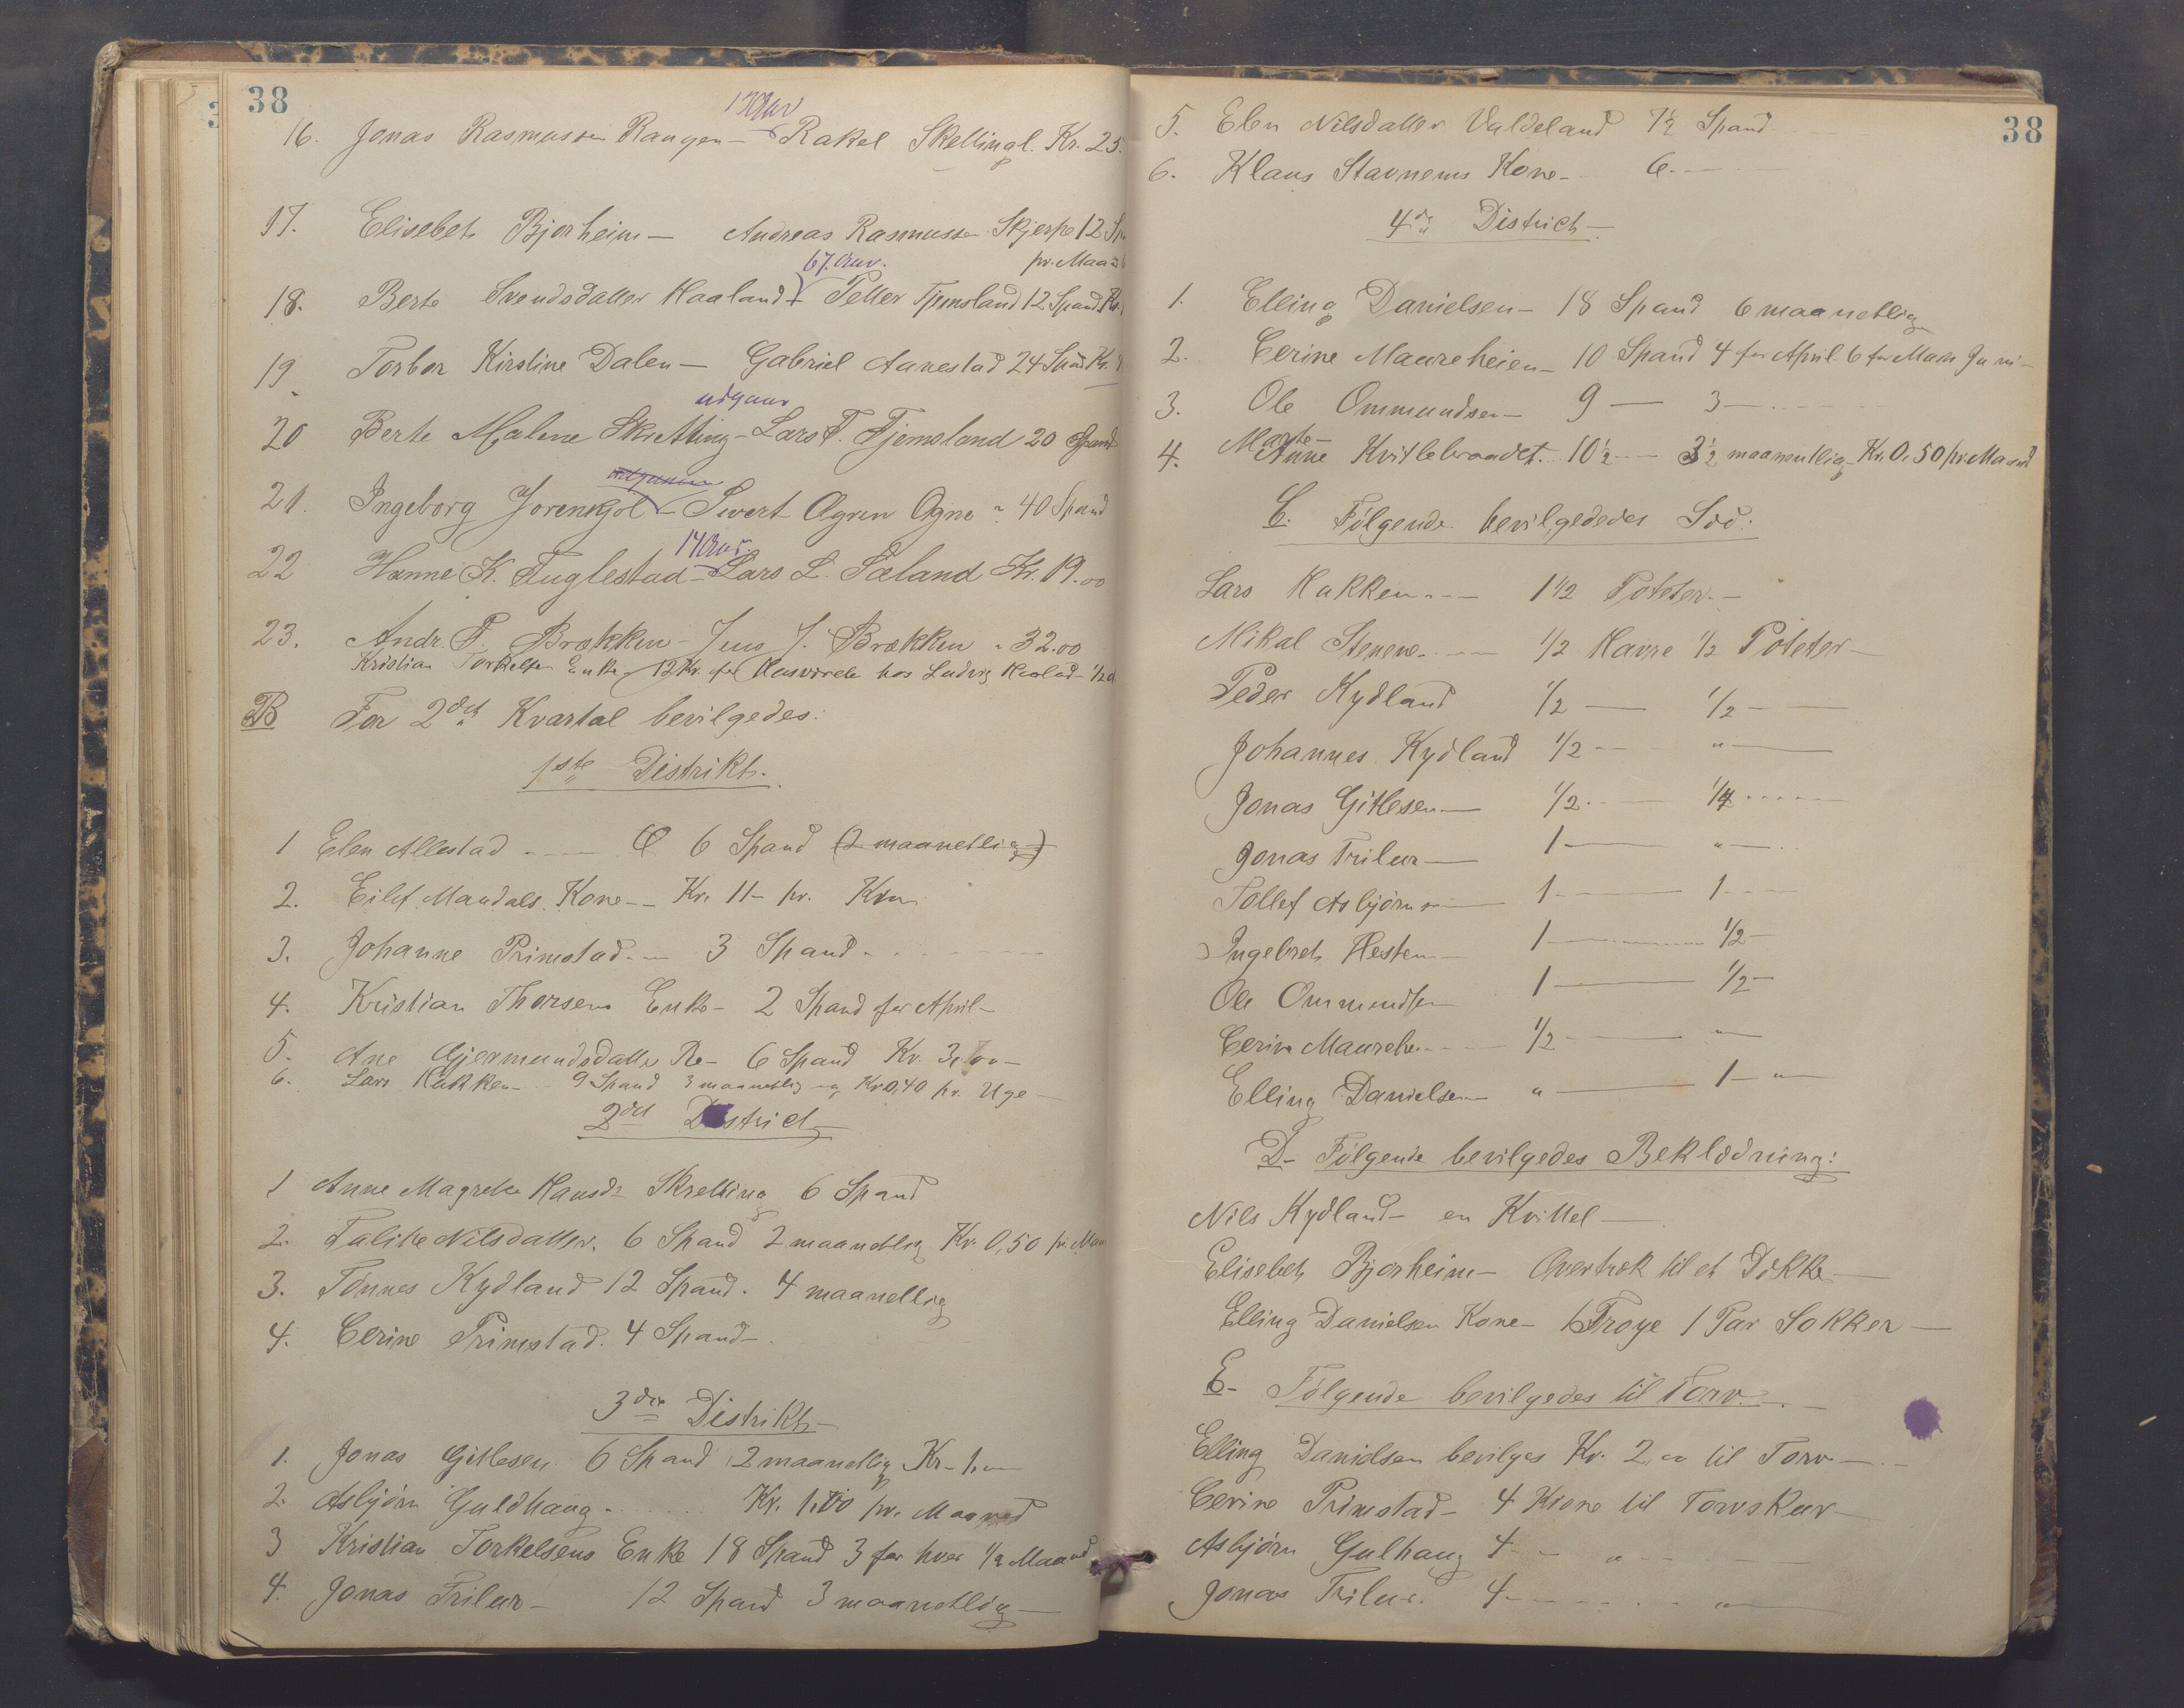 38
16. Jonas Rasmussen Raugen – Rakel Skellingl. Kr. 25.
17. Elisebet Bjorheim – Andreas Rasmussen Skjerpe 12 Sp
pr. Maan
18. Berte Svendsdatter Haaland – Petter Tjemsland 12 Spand Kr.
19 Torbor Kirstine Dalen – Gabriel Aanestad 24 Spand Kr.
udgaar
20 Berte Malene Skretting – Lars T. Tjemsland 20 Spand
21. Ingeborg – Sivert Ogne " 40 Spand
22 Hanne K. Fuglestad – Lars L. Sæland Kr. 19.00
23. Andr. T. Brækken – Jens J. Brækken " 32.00
Kristian Torkelsen Enke 12 Kr. for Husværelse hos Ludvig
B For 2det Kvartal bevilgedes:
1ste Distrikt.
1 Elen Allestad 6 Spand (2 maanetlig)
2. Eilef Maudals Kone – Kr. 11 – pr.
3. Johanne Primstad – 3 Spand
4. Kristian Thorsens Enke – 2 Spand for April –
5. Ane Gjermundsdatter Re – 6 Spand Kr. 3,00 –
6. Lars Hakken – 9 Spand 3 maanetlig og Kr. 0,40 pr. Uge –
2det District
1 Anne Magrete Hansdr Skretting 6 Spand
2. Talike Nilsdatter. 6 Spand 2 maanetlig Kr. 0,50 pr. Maa
3. Tönnes Kydland 12 Spand. 4 maanetlig
4. Cerine Primstad. 4 Spand –
3die Distrikt –
1. Jonas Gitlesen 6 Spand 2 maanetlig Kr. 1.
2. Asbjörn Guldhaug – Kr. 1.00 pr. Maaned
3 Kristian Torkelsens Enke 18 Spand 3 for hver 1/2 Maaned
4. Jonas Trilur – 12 Spand 3 maanetlig –
38
5. Elen Nilsdatter Valdeland 7½ Spand
6. Klaus Stavnems Kone – 6. –
4de District –
1. Elling Danielsen – 18 Spand 6 maanetlig
2. Cerine Maureheien – 10 Spand 4 for April 6 for Mai Juni –
3. Ole Ommundsen – 9 – 3 –
4. Marte Anne Kvitlebraadet. 10½ – 3½ maanetlig – Kr. 0,50 pr. Maaned
C. Fölgende bevilgededes Sæd:
Lars Hakken – 1 1/2 Poteter. –
Mikal Stenene – 1/2 Havre 1/2 Poteter –
Peder Kydland 1/2 – 1/2 –
Johannes Kydland 1/2 – " –
Jonas Gitlesen – 1/2 – 1/4
Jonas Trilur – 1 – " –
Tollef Asbjörnsen – 1 – 1 –
Ingebret Hesten – 1 – 1/2 –
Ole Ommundsen 1 – 1/2 –
Cerine Maurehe – 1/2 – " –
Elling Danielsen – " – 1 – " –
D – Fölgende bevilgedes Beklædning:
Nils Kydland – en Kittel –
Elisebet Bjorheim – Overtræk til et Dække –
Elling Danielsen Kone – 1 Troye 1 Par Sokker –
E – Fölgende bevilgedes til Torv. –
Elling Danielsen bevilges Kr. 2,00 til Torv –
Cerine Primstad – 4 Krone til Torvskur –
Asbjörn Gulhaug 4 – " –
Jonas Trilur. 4 – " –